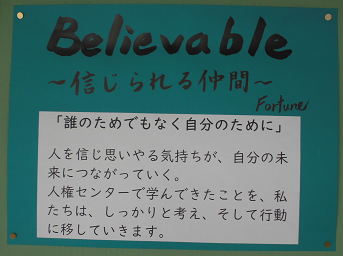 Believable
～信じられる仲間～
Fortune
「誰のためでもなく自分のために」
人を信じ思いやる気持ちが、自分の未
来につながっていく。
人権センターで学んできたことを、私
たちは、しっかりと考え、そして行動
に移していきます。